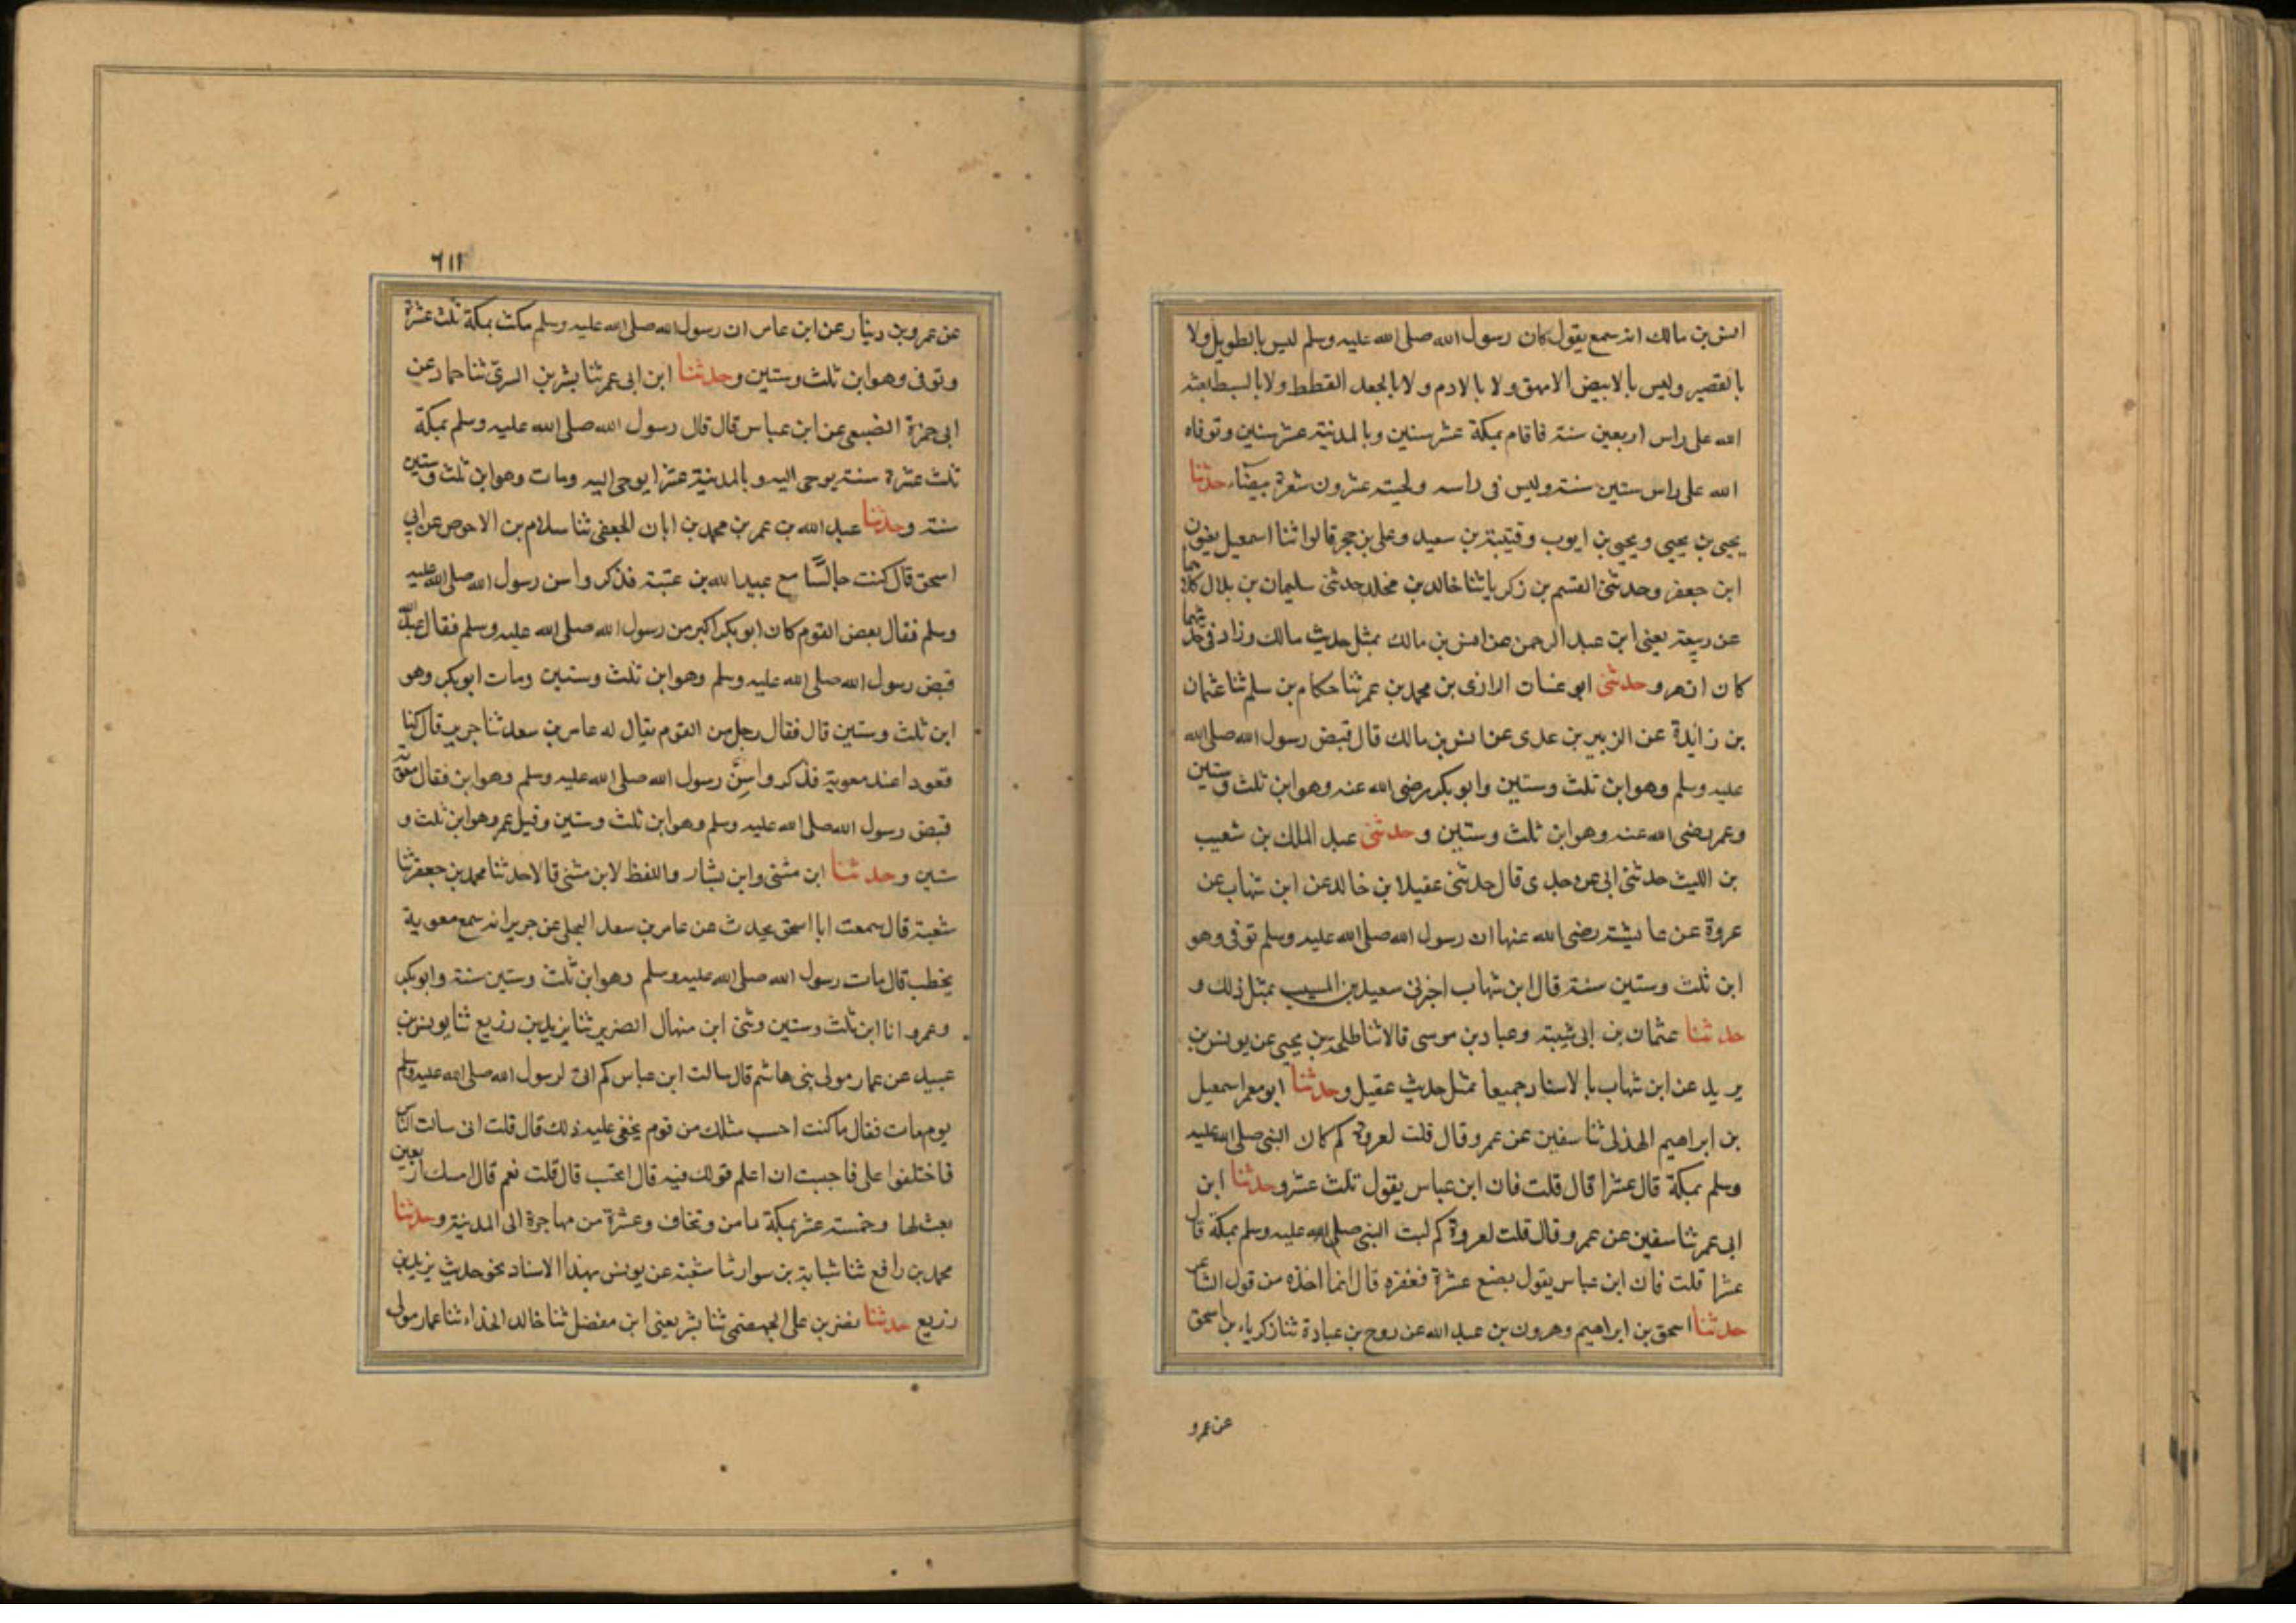 انس بن مالك انه سمع يقول كان رسول الله صلى الله عليه وسلم ليس بالطويل ولا
بالقصير وليس بالابيض الامهق ولا بالادم ولا بالجعد القطط ولا بالسبط بعثه
الله على راس اربعين سنة فاقام بمكة عشر سنين وبالمدينة عشر سنين وتوفاه
الله على راس ستين سنة وليس فى راسه ولحيته عشرون شعرة بيضآء حدثنا
يحيى بن يحيى ويحيى بن ايوب وقتيبة بن سعيد وعلى بن حجر قالوا ثنا اسمعيل يعنون
ابن جعفر وحدثنى القسم بن زكريا ثنا خالد بن مخلد حدثنى سليمان بن بلال كلاهما
عن ربيعة يعنى ابن عبد الرحمن عن انس بن مالك بمثل حديث مالك وزاد فى حديثهما
كان ازهر وحدثنى ابو غسان الرازى بن محمد بن عمر ثنا حكام بن سلم ثنا عثمان
بن زايدة عن الزبير بن عدى عن انس بن مالك قال قبض رسول الله صلى الله
عليه وسلم وهو ابن ثلث وستين وابو بكر رضى الله عنه وهو ابن ثلث وستين
وعمر رضى الله عنه وهو ابن ثلث وستين وحدثنى عبد الملك بن شعيب
بن الليث حدثنى ابى عن جدى قال حدثنى عقيل بن خالد عن ابن شهاب عن
عروة عن عايشة رضى الله عنها ان رسول الله صلى الله عليه وسلم توفى وهو
ابن ثلث وستين سنة قال ابن شهاب اخبرنى سعيد بن المسيب بمثل ذلك و
حدثنا عثمان بن ابى شيبة وعباد بن موسى قالا ثنا طلحة بن يحيى عن يونس بن
يزيد عن ابن شهاب بالاسناد جميعا بمثل حديث عقيل وحدثنا ابو معمر اسمعيل
بن ابراهيم الهذلى ثنا سفين عن عمرو قال قلت لعروة كم كان النبى صلى الله عليه
وسلم بمكة قال عشرا قال قلت فان ابن عباس يقول ثلث عشر وحدثنا ابن
ابى عمر ثنا سفين عن عمرو قال قلت لعروة كم لبث النبى صلى الله عليه وسلم بمكة قال
عشرا قلت فان ابن عباس يقول بضع عشرة فغفره قال انما اخذه من قول الشاعر
حدثنا اسحق بن ابراهيم وهرون بن عبد الله عن روح بن عبادة ثنا زكرياء بن اسحق
عن عمرو
٦١١
عن عمرو بن دينار عن ابن عباس ان رسول الله صلى الله عليه وسلم مكث بمكة ثلث عشرة
وتوفى وهو ابن ثلث وستين وحدثنا ابن ابى عمر ثنا بشر بن السرى ثنا حماد عن
ابى حمزة الضبعى عن ابن عباس قال قال رسول الله صلى الله عليه وسلم بمكة
ثلث عشرة سنة يوحى اليه وبالمدينة عشرا يوحى اليه ومات وهو ابن ثلث وستين
سنة وحدثنا عبد الله بن عمر بن محمد بن ابان الجعفى ثنا سلام بن الاحوص عن ابى
اسحق قال كنت جالسًا مع عبيد الله بن عتبة فذكروا سن رسول الله صلى الله عليه
وسلم فقال بعض القوم كان ابو بكر اكبر من رسول الله صلى الله عليه وسلم فقال عبد الله
قبض رسول الله صلى الله عليه وسلم وهو ابن ثلث وستين ومات ابو بكر وهو
ابن ثلث وستين قال فقال رجل من القوم يقال له عامر بن سعد ثنا جرير قال كنا
قعودا عند معوية فذكروا سِنَّ رسول الله صلى الله عليه وسلم وهو ابن فقال معوية
قبض رسول الله صلى الله عليه وسلم وهو ابن ثلث وستين وقيل عمر وهو ابن ثلث و
ستين وحدثنا ابن مثنى وابن بشار واللفظ لابن مثنى قالا حدثنا محمد بن جعفر ثنا
شعبة قال سمعت ابا اسحق يحدث عن عامر بن سعد البجلى عن جرير انه سمع معوية
يخطب قال مات رسول الله صلى الله عليه وسلم وهو ابن ثلث وستين سنة وابو بكر
وعمر وانا ابن ثلث وستين وثنى ابن منهال الضرير ثنا يزيد بن زريع ثنا يونس بن
عبيد عن عمار مولى بنى هاشم قال سالت ابن عباس كم اتى لرسول الله صلى الله عليه وسلم
يوم مات فقال ما كنت احسب مثلك من قوم يخفى عليه ذلك قال قلت انى سالت الناس
فاختلفوا على فاحببت ان اعلم قولك فيه قال اتحسب قال قلت نعم قال امسك اربعين
بعث لها وخمسة عشر بمكة يامن ويخاف وعشرة من مهاجرة الى المدينة وحدثنا
محمد بن رافع ثنا شبابة بن سوار ثنا شعبة عن يونس بهذا الاسناد نحو حديث يزيد بن
زريع حدثنا نصر بن على الجهضمى ثنا بشر يعنى ابن مفضل ثنا خالد الحذاء ثنا عمار مولى